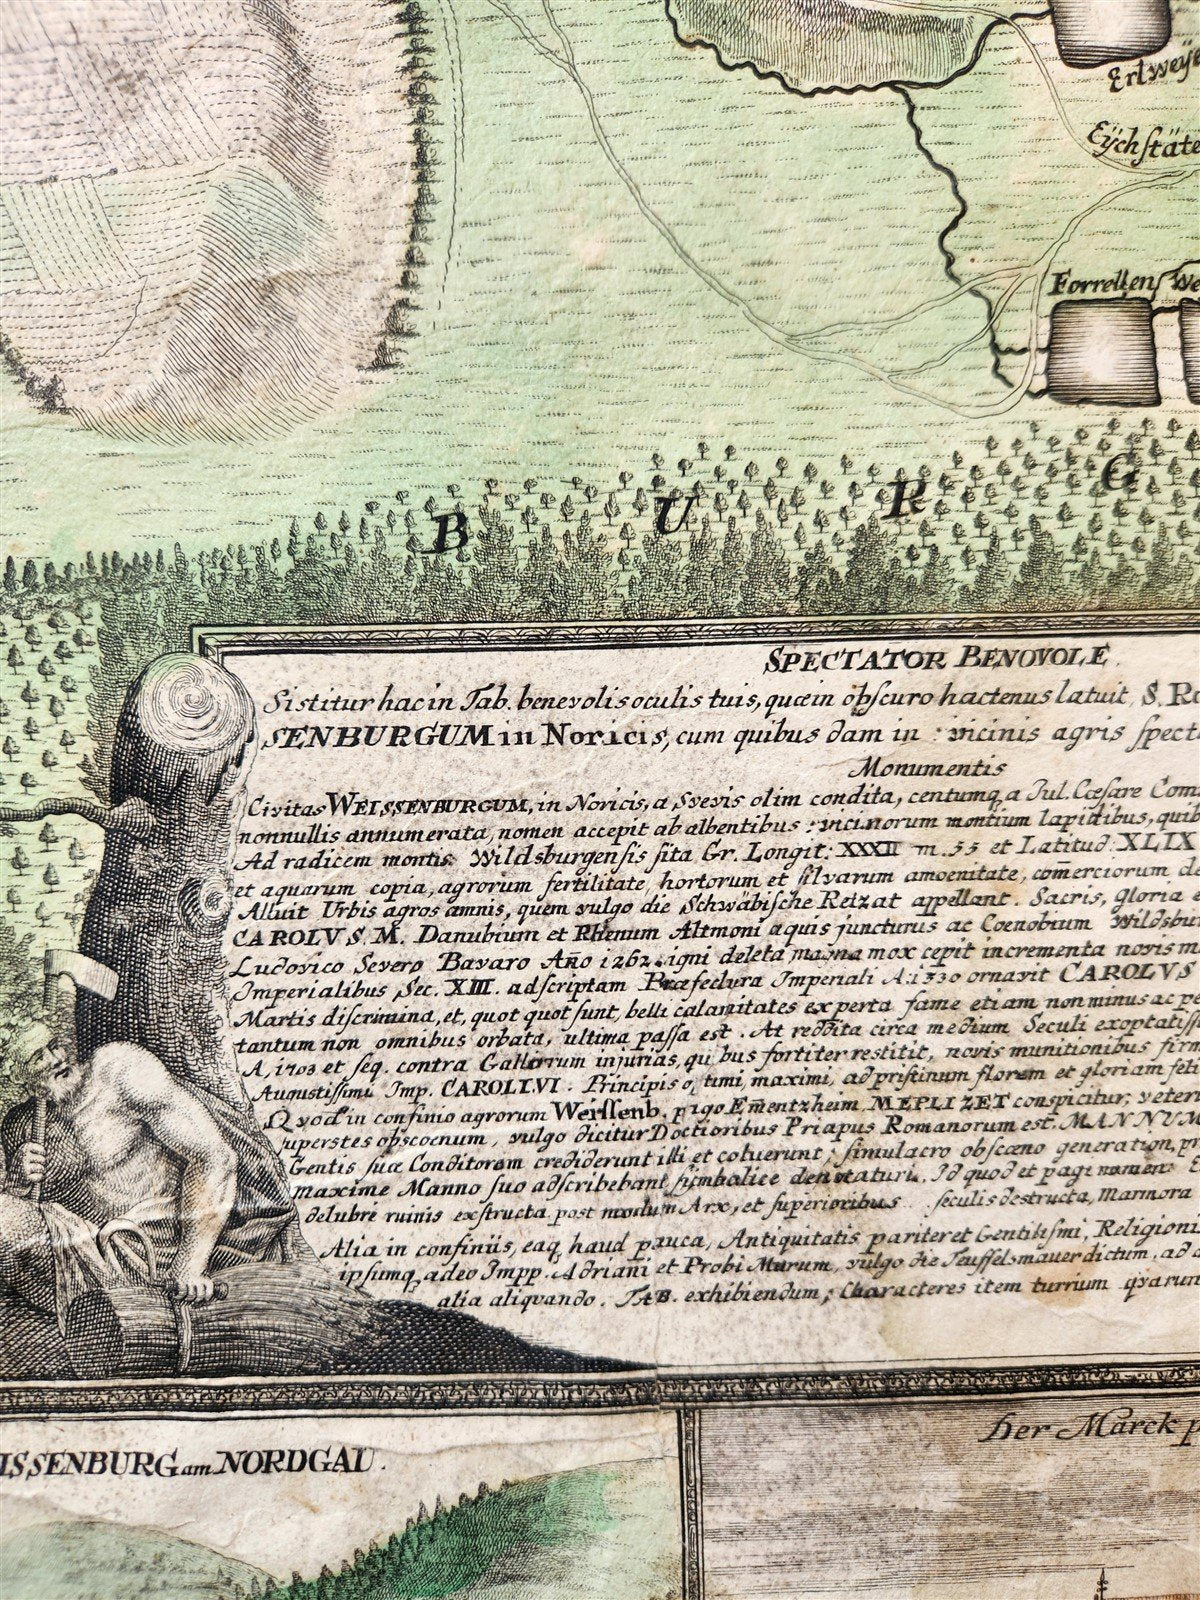 Erlweÿe
Eÿchstäte
Forrellen We
B U R G
SPECTATOR BENOVOLE.
Sistitur hac in Tab. benevolis oculis tuis, quæ in obscuro hactenus latuit, S. R
SENBURGUM in Noricis, cum quibusdam in vicinis agris spect
Monumentis
Civitas WEISSENBURGUM, in Noricis, a Svevis olim condita, centumq a Jul. Cæsare Com
nonnullis annumerata, nomen accepit ab albentibus vicinorum montium lapidibus, quib
Ad radicem montis Wildsburgensis sita Gr. Longit: XXXII m. 55 et Latitud. XLIX
et aquarum copia, agrorum fertilitate, hortorum et silvarum amoenitate, com̄erciorum de
Alluit Urbis agros amnis, quem vulgo die Schwäbische Retzat appellant. Sacris, gloria
CAROLVS. M. Danubium et Rhenum Altmoni aquis juncturus ac Coenobium Wildsbu
Ludovico Severo Bavaro Año 1262. igni deleta magna mox cepit incrementa novis m
Imperialibus Sec. XIII. adscriptam Præfectura Imperiali A: 1330 ornavit CAROLVS
Martis discrimina, et, quot quot sunt, belli calamitates experta fame etiam non minus ac pe
tantum non omnibus orbata, ultima passa est. At reddita circa medium Seculi exoptatiss
A, 1703 et seq. contra Gallorum injurias, quibus fortiter restitit, novis munitionibus firm
Augustissimi Imp. CAROLI.VI. Principis optimi, maximi, ad pristinum florem et gloriam feli
Quod in confinio agrorum Weissenb. pago Em̄entzheim, MEPLIZET conspicitur; veteri
superstes obscoenum, vulgo dicitur Doctioribus Priapus Romanorum est. MANNUM
Gentis suæ Conditorem crediderunt illi et coluerunt; simulacro obscæno generation, pr
maxime Manno suo adscribebant symbolice denotaturi. Id quod et pagi nomen
delubre ruinis exstructa post modum Arx, et superioribus seculis destructa, Marmora
Alia in confiniis, eaq haud pauca, Antiquitatis pariter et Gentilismi, Religioni
ipsumq adeo Impp. Adriani et Probi Murum, vulgo die Teuffelsmauer dictum, ad
alia aliquando. TAB. exhibiendum; Characteres item turrum qvarum
ISSENBURG am NORDGAU.
her Marck p